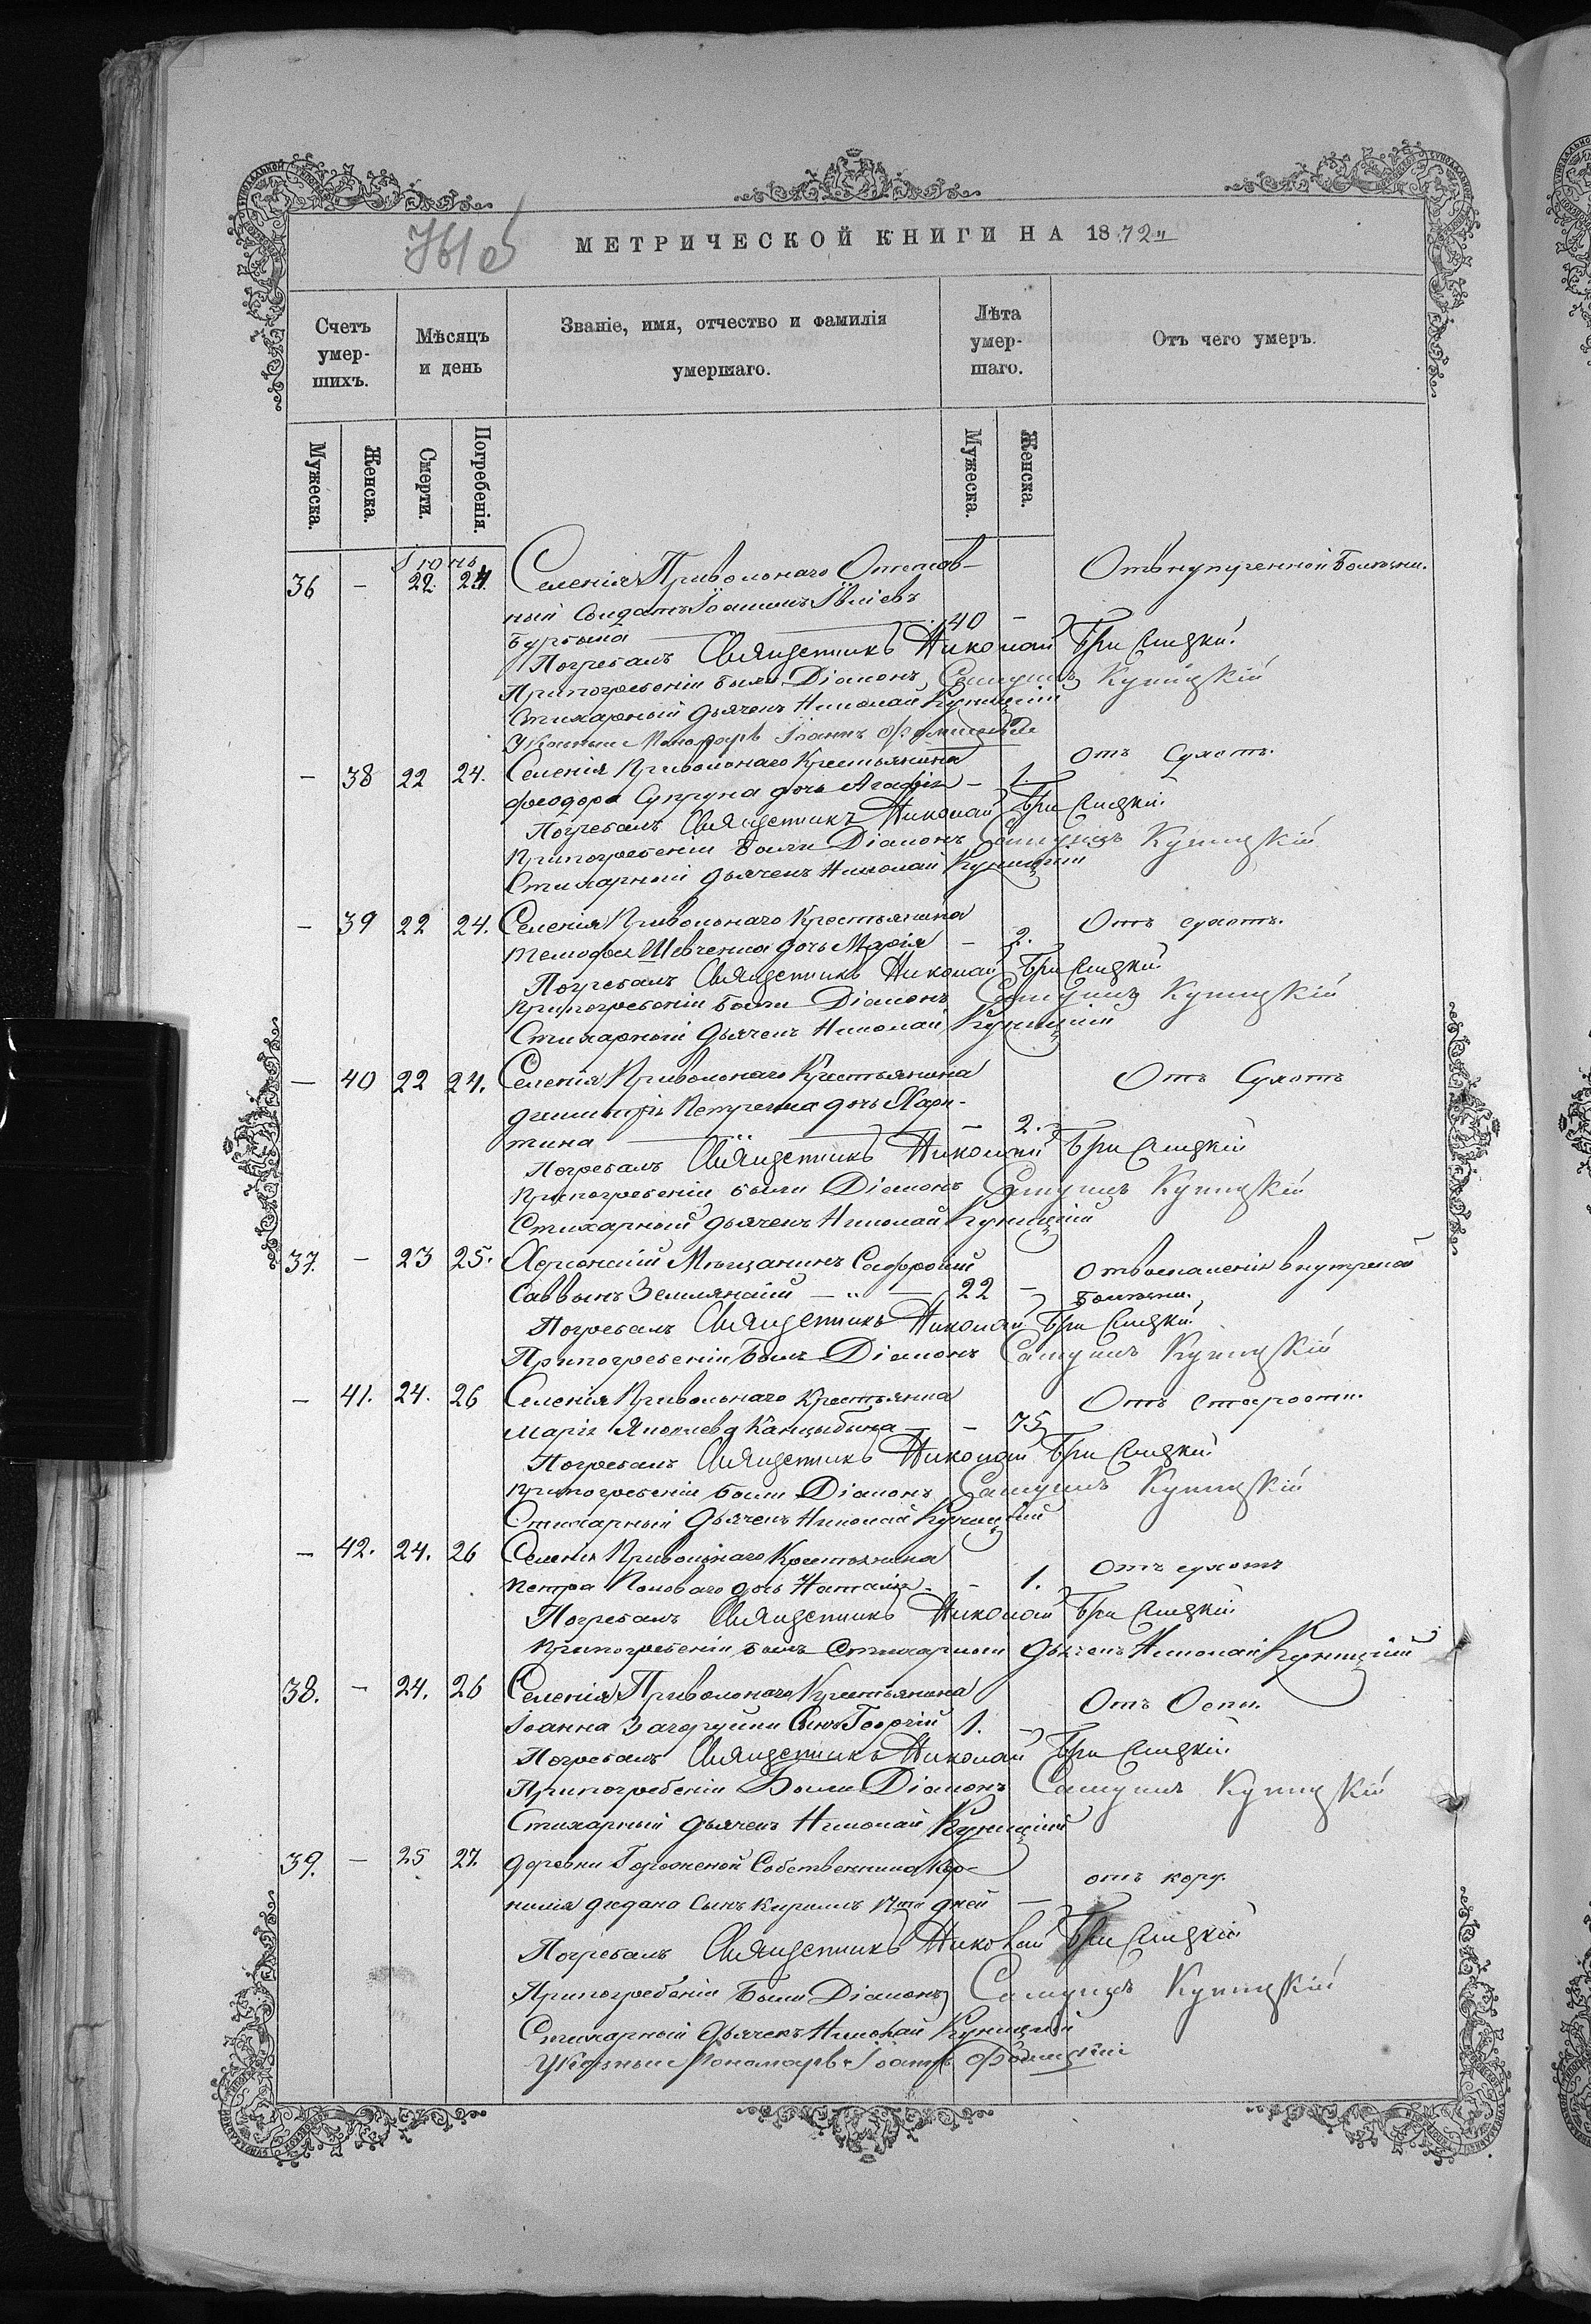 МЕТРИЧЕСКОЙ КНИГИ НА 1872
Счетъ умер-шихъ.
Мѣсяцъ и день
Званіе, имя, отчество и фамилія умершаго.
Лѣта умер-шаго.
Отъ чего умеръ.
Мужеска.
Женска.
Смерти.
Погребенія.
Мужеска.
Женска.
36 - 22. 24. Селенія Привольнаго Отстав-
ный Солдатъ Іоаннъ 40 -
Погребалъ Священникъ Николай
При погребеніи были Діаконъ Самуилъ Куницкій
Стихарный дьячекъ Николай Куницкій
Указный Пономарь Іоаннъ
- 38 22 24. Селенія Привольнаго Крестьянина Отъ Сухотъ.
Феодора Супруна дочь Агафія - 1.
Погребалъ Священникъ Николай
При погребеніи были Діаконъ Самуилъ Куницкій
Стихарный дьячекъ Николай Куницкій
- 39 22 24. Селенія Привольнаго Крестьянина Отъ сухотъ.
Тимофея Шевченка дочь Марія - 2.
Погребалъ Священникъ Николай
При погребеніи были Діаконъ Самуилъ Куницкій
Стихарный дьячекъ Николай Куницкій
- 40 22 24. Селенія Привольнаго Крестьянина Отъ Сухотъ
Димитрія Петренка дочь Хари-
тина - 2.
Погребалъ Священникъ Николай
При погребеніи были Діаконъ Самуилъ Куницкій
Стихарный дьячекъ Николай Куницкій
37. - 23 25. Херсонскій Мѣщанинъ внутреной
Саввинъ Землянскій - " - 22 - болѣзни.
Погребалъ Священникъ Николай
При погребеніи былъ Діаконъ Самуилъ Куницкій
- 41. 24. 26 Селенія Привольнаго Крестьянка Отъ старости.
Марія Яковлева - 75
Погребалъ Священникъ Николай
При погребеніи были Діаконъ Самуилъ Куницкій
Стихарный дьячекъ Николай Куницкій
- 42. 24. 26 Селенія Привольнаго Крестьянина Отъ сухотъ
Петра дочь Наталія - 1.
Погребалъ Священникъ Николай
При погребеніи былъ Стихарный дьячекъ Николай Куницкій
38. - 24. 26 Селенія Привольнаго Крестьянина Отъ Оспы.
Іоанна Сынъ Георгій 1. -
Погребалъ Священникъ Николай
При погребеніи Были Діаконъ Самуилъ Куницкій
Стихарный дьячекъ Николай Куницкій
39. - 25 27. деревни Собственника Кор- отъ кору.
нилія Сынъ Кирилъ дней -
Погребалъ Священникъ Николай
При погребеніи Были Діаконъ Самуилъ Куницкій
Стихарный дьячекъ Николай Куницкій
Указный Пономарь Іоаннъ